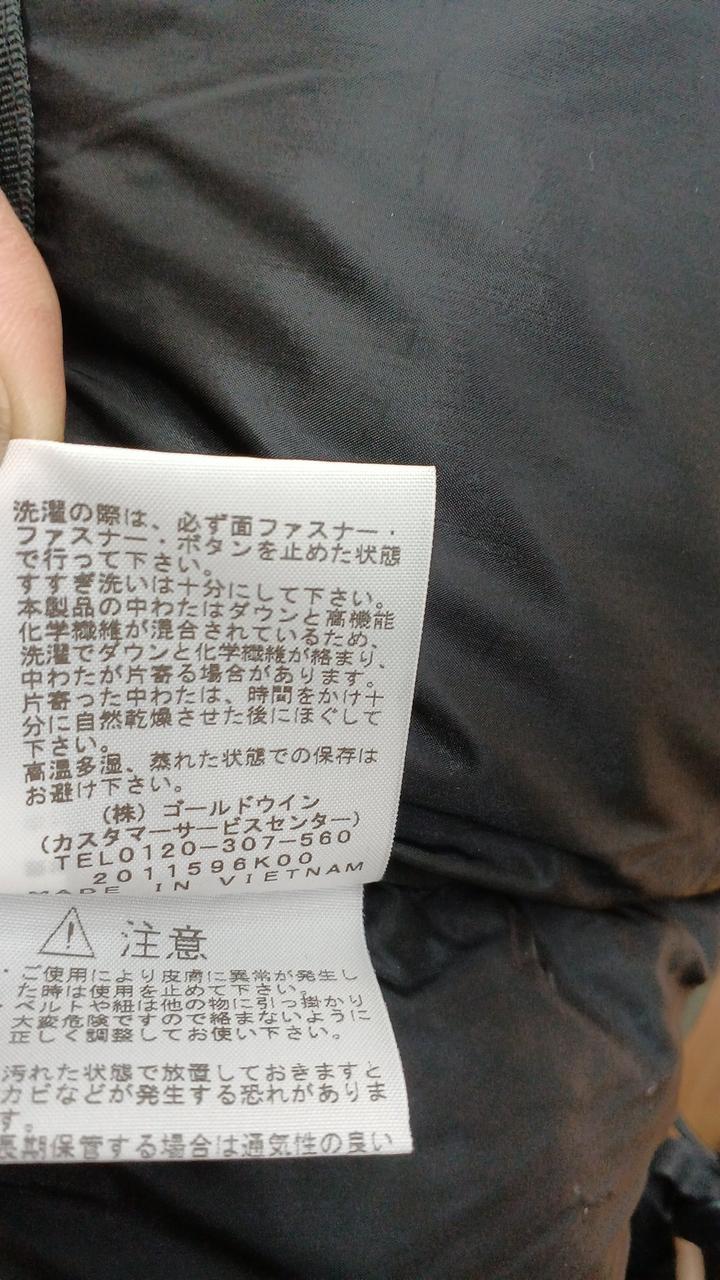 洗濯の際は、必ず面ファスナー・
ファスナー・ボタンを止めた状態
で行って下さい。
すすぎ洗いは十分にして下さい。
本製品の中わたはダウンと高機能
化学繊維が混合されているため、
洗濯でダウンと化学繊維が絡まり、
中わたが片寄る場合があります。
片寄った中わたは、時間をかけ十
分に自然乾燥させた後にほぐして
下さい。
高温多湿、蒸れた状態での保存は
お避け下さい。
(株) ゴールドウイン
(カスタマーサービスセンター)
TEL0120-307-560
2011596K00
MADE IN VIETNAM
注意
・ご使用により皮膚に異常が発生し
た時は使用を止めて下さい。
・ベルトや紐は他の物に引っ掛かり
大変危険ですので絡まないように
正しく調整してお使い下さい。
汚れた状態で放置しておきますと
カビなどが発生する恐れがありま
す。
長期保管する場合は通気性の良い